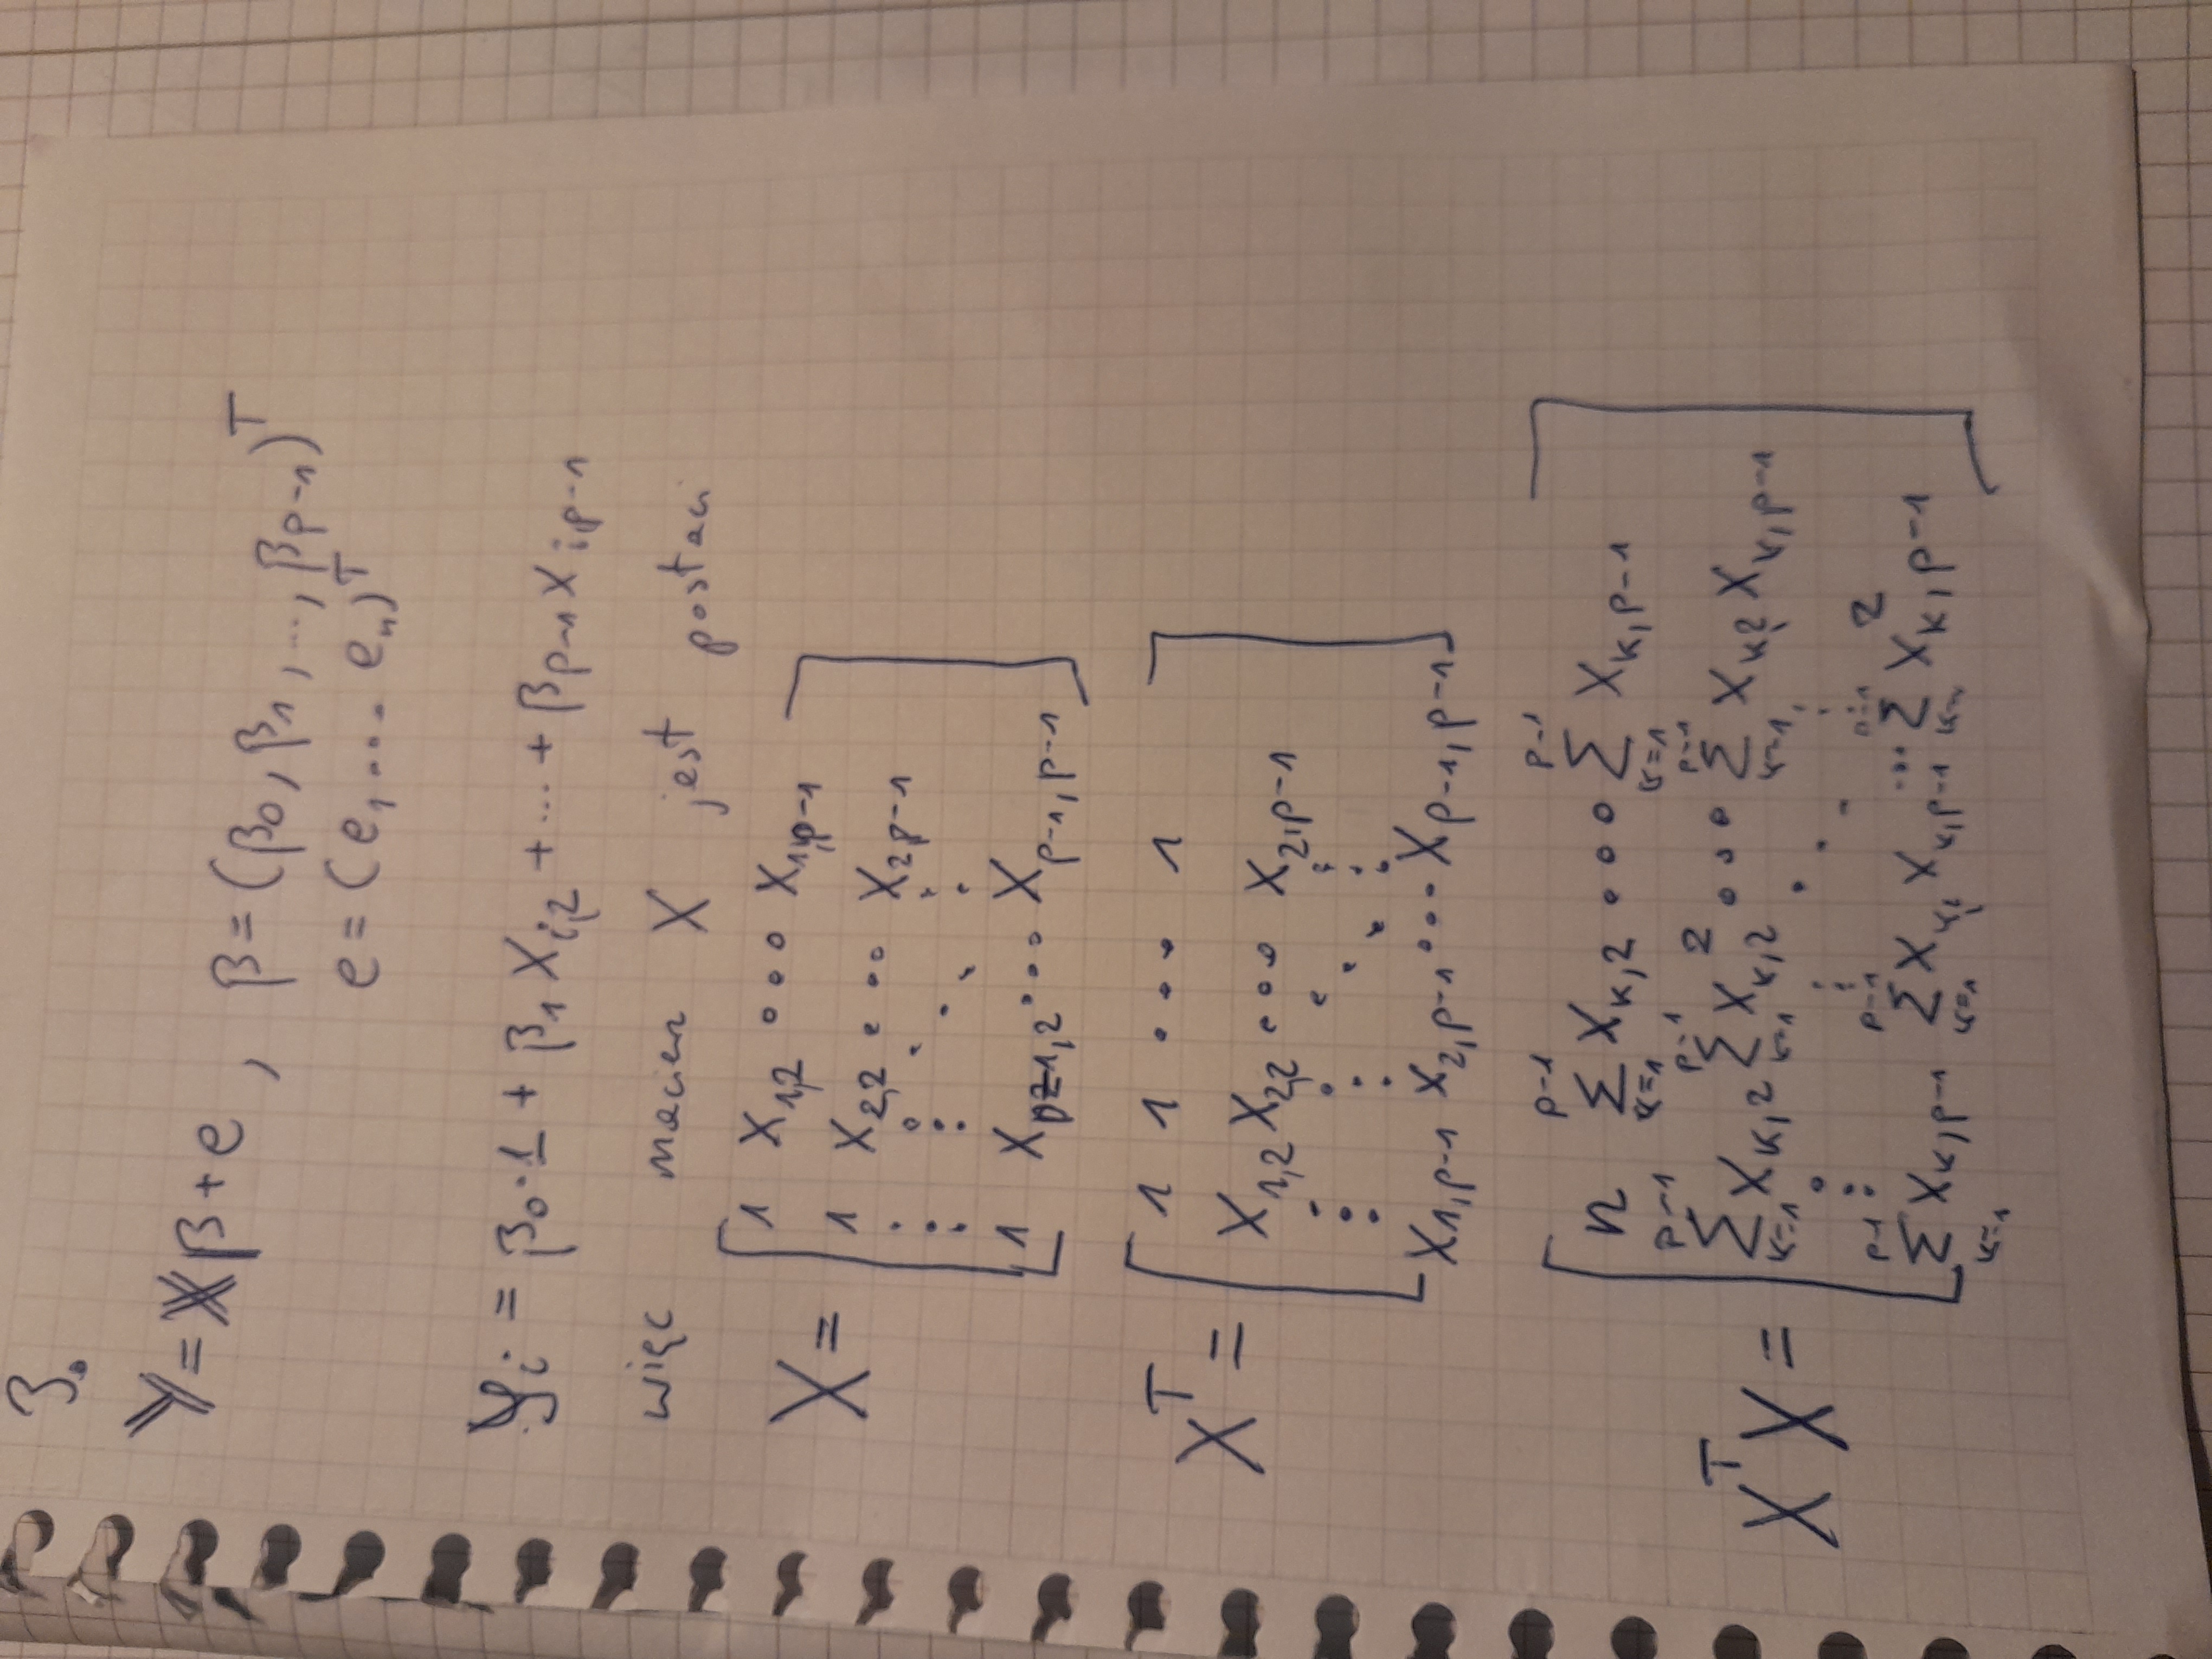 3.
Y = Xβ + e , β = (β₀, β₁, ..., βₚ₋₁)ᵀ
e = (e₁ .... eₙ)ᵀ
yᵢ = β₀·1 + β₁ X_{i,2} + ... + β_{p-1} X_{i,p-1}
więc macierz X jest postaci
X = [ 1 X_{1,2} ... X_{1,p-1}
1 X_{2,2} ... X_{2,p-1}
⋮ ⋮ ⋱ ⋮
1 X_{p-1,2} ... X_{p-1,p-1} ]
Xᵀ = [ 1 1 ... 1
X_{1,2} X_{2,2} ... X_{2,p-1}
⋮ ⋮ ⋱ ⋮
X_{1,p-1} X_{2,p-1} ... X_{p-1,p-1} ]
XᵀX = [ n ∑_{k=1}^{p-1} X_{k,2} ... ∑_{k=1}^{p-1} X_{k,p-1}
∑_{k=1}^{p-1} X_{k,2} ∑_{k=1}^{p-1} X_{k,2}² ... ∑_{k=1}^{p-1} X_{k,2} X_{k,p-1}
⋮ ⋮ ⋱ ⋮
∑_{k=1}^{p-1} X_{k,p-1} ∑_{k=1}^{p-1} X_{k,} X_{k,p-1} ... ∑ X²_{k,p-1} ]